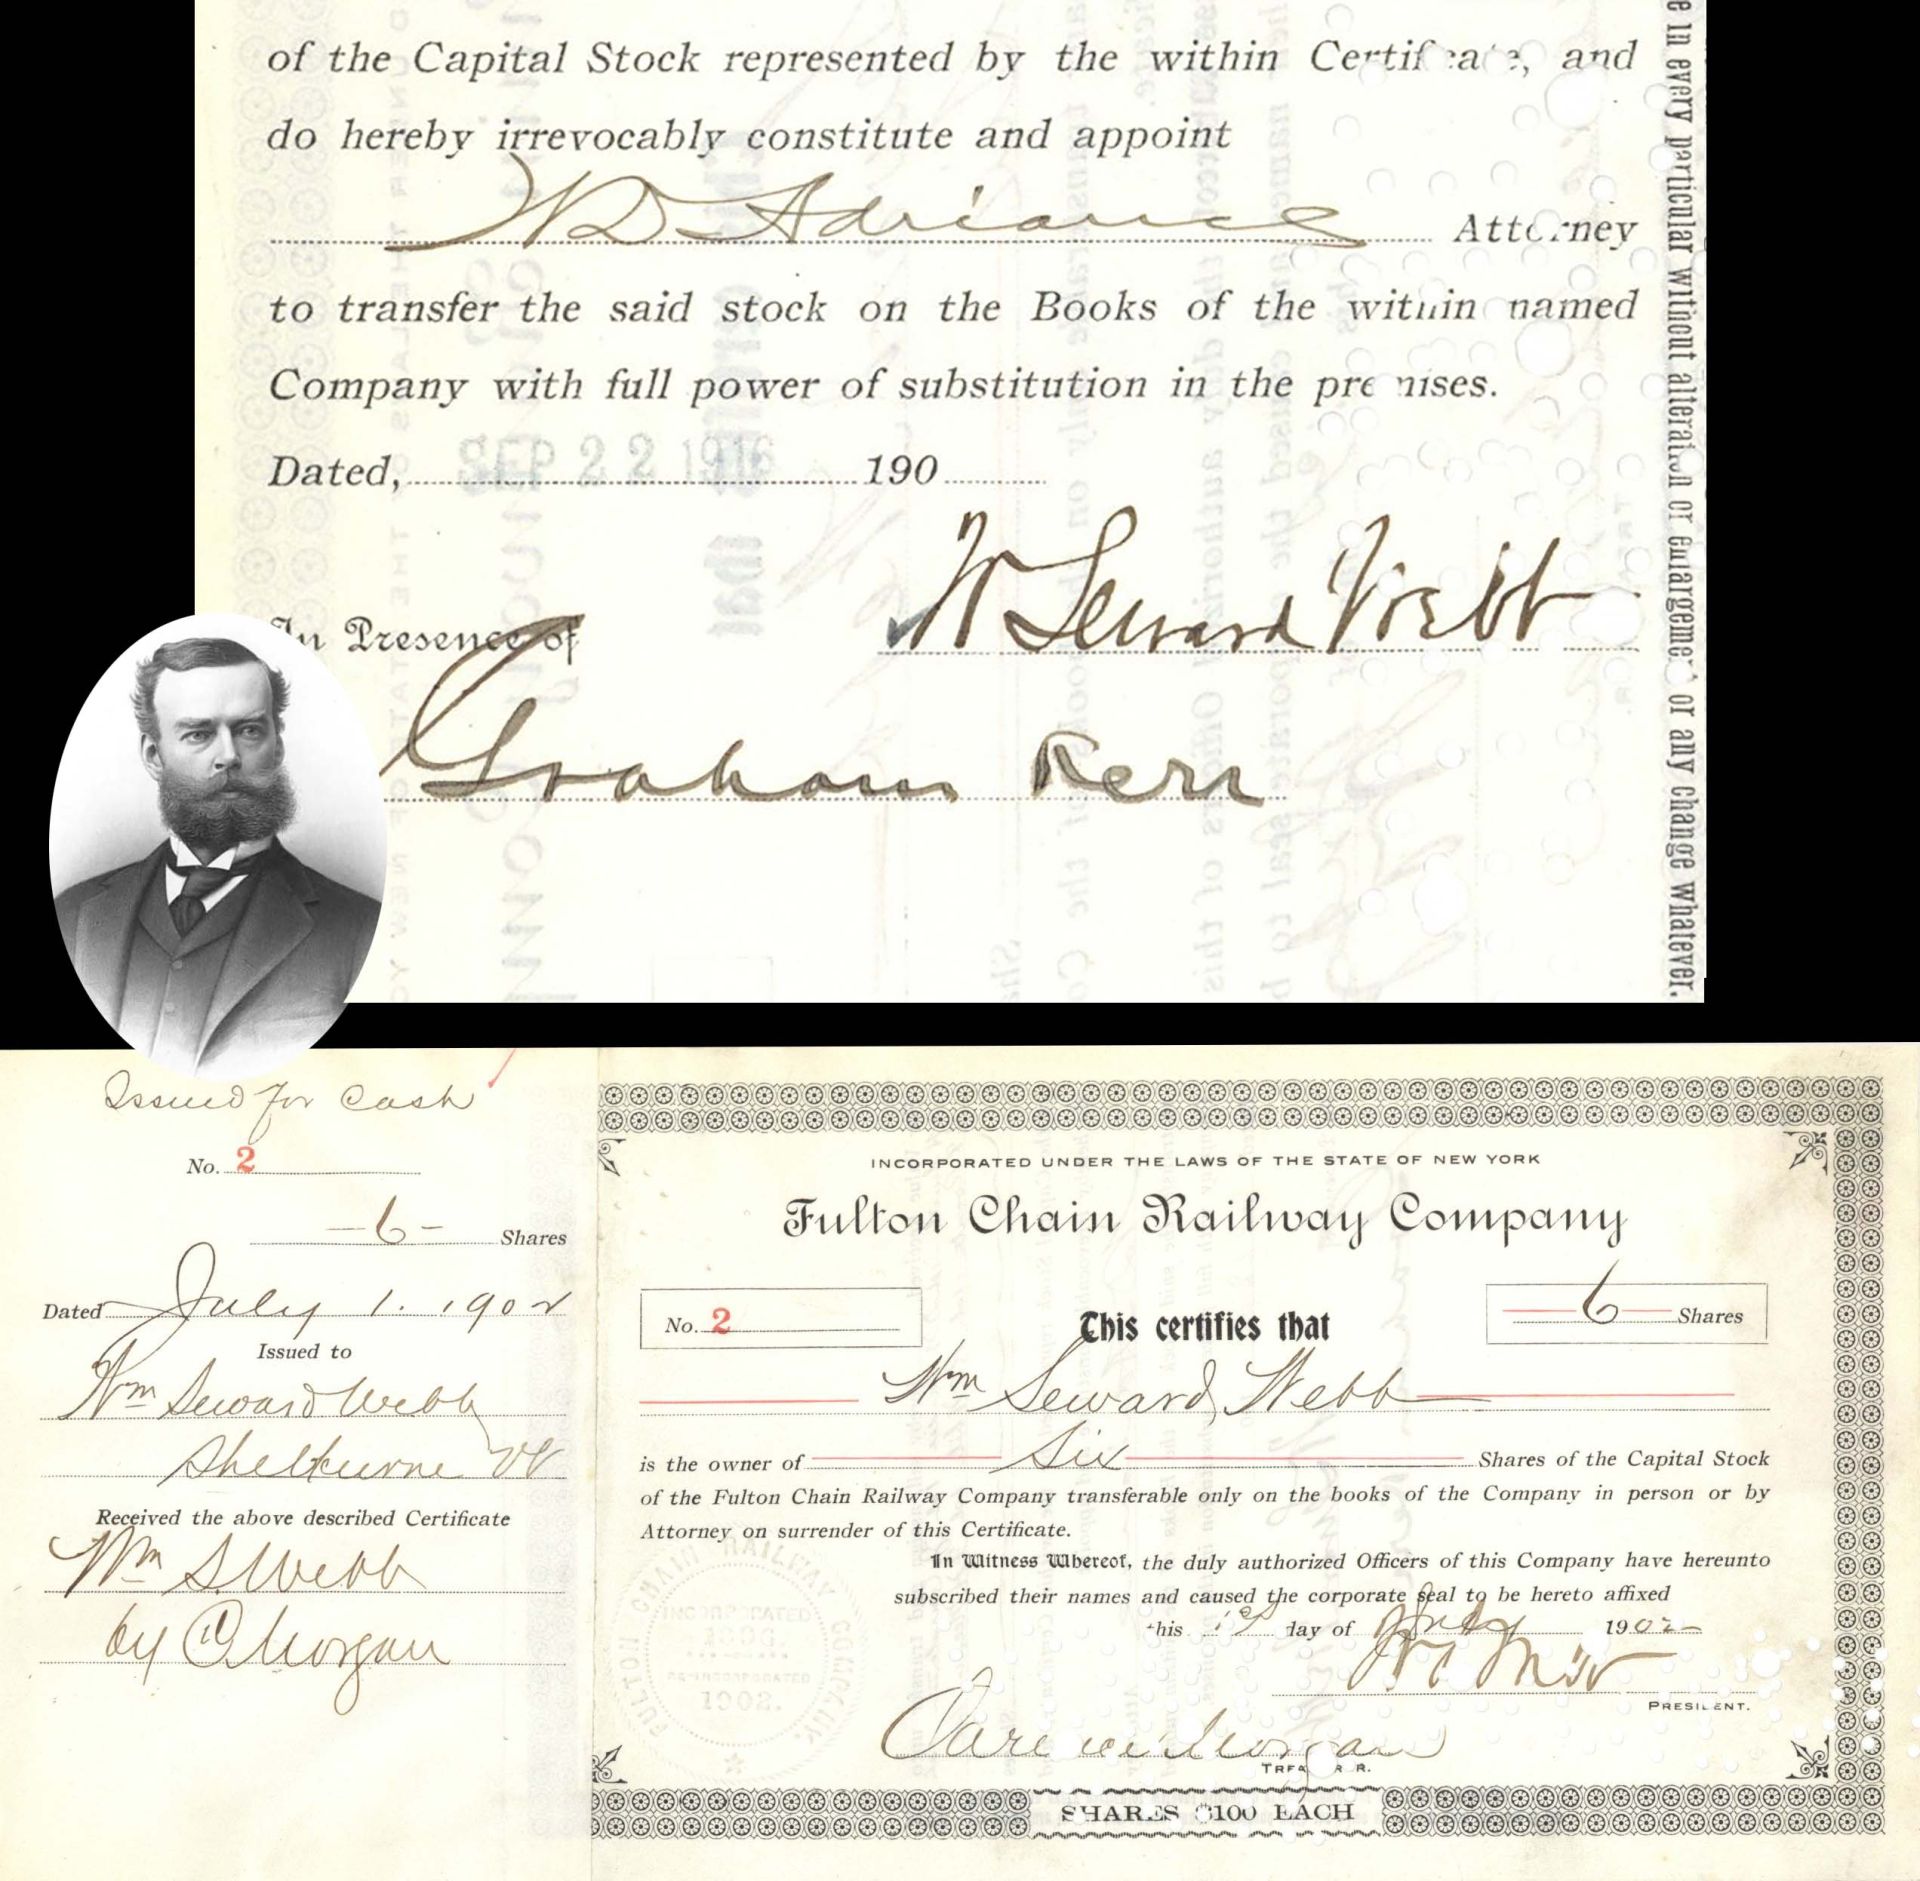 of the Capital Stock represented by the within Certificate, and
do hereby irrevocably constitute and appoint
W D Adriance Attorney
to transfer the said stock on the Books of the within named
Company with full power of substitution in the premises.
Dated, SEP 22 1916 190
W Seward Webb
In Presence of
Graham Kerr
e in every particular without alteration or enlargement or any change whatever.
Issued for Cash
No. 2
- 6 - Shares
Dated July 1. 1902
Issued to
Wm Seward Webb
Shelburne Vt
Received the above described Certificate
Wm S. Webb
by C Morgan
INCORPORATED UNDER THE LAWS OF THE STATE OF NEW YORK
Fulton Chain Railway Company
No. 2
This certifies that
6 Shares
Wm Seward Webb
is the owner of Six Shares of the Capital Stock
of the Fulton Chain Railway Company transferable only on the books of the Company in person or by
Attorney on surrender of this Certificate.
In Witness Whereof, the duly authorized Officers of this Company have hereunto
subscribed their names and caused the corporate seal to be hereto affixed
this 1st day of July 1902
PRESIDENT.
Clarence Morgan
TREASURER.
FULTON CHAIN RAILWAY COMPANY
INCORPORATED
RE-INCORPORATED
1902.
SHARES $100 EACH